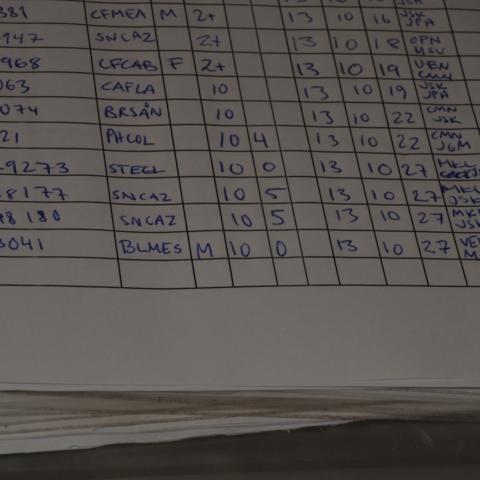 381 CFMEA M 2+ 13 10 16 JSK JPA
947 SNCAZ 2+ 13 10 18 OPN MSU
968 CFCAB F 2+ 13 10 19 VEN CMN
063 CAFLA 10 13 10 19 JSK JPA
074 BRSÅN 10 13 10 22 CMN JSK
21 PHCOL 10 4 13 10 22 CMN JGM
9273 STECL 10 0 13 10 27 MKL
8177 SNCAZ 10 5 13 10 27 MKL JSK
8180 SNCAZ 10 5 13 10 27 MKL JSK
3041 BLMES M 10 0 13 10 27